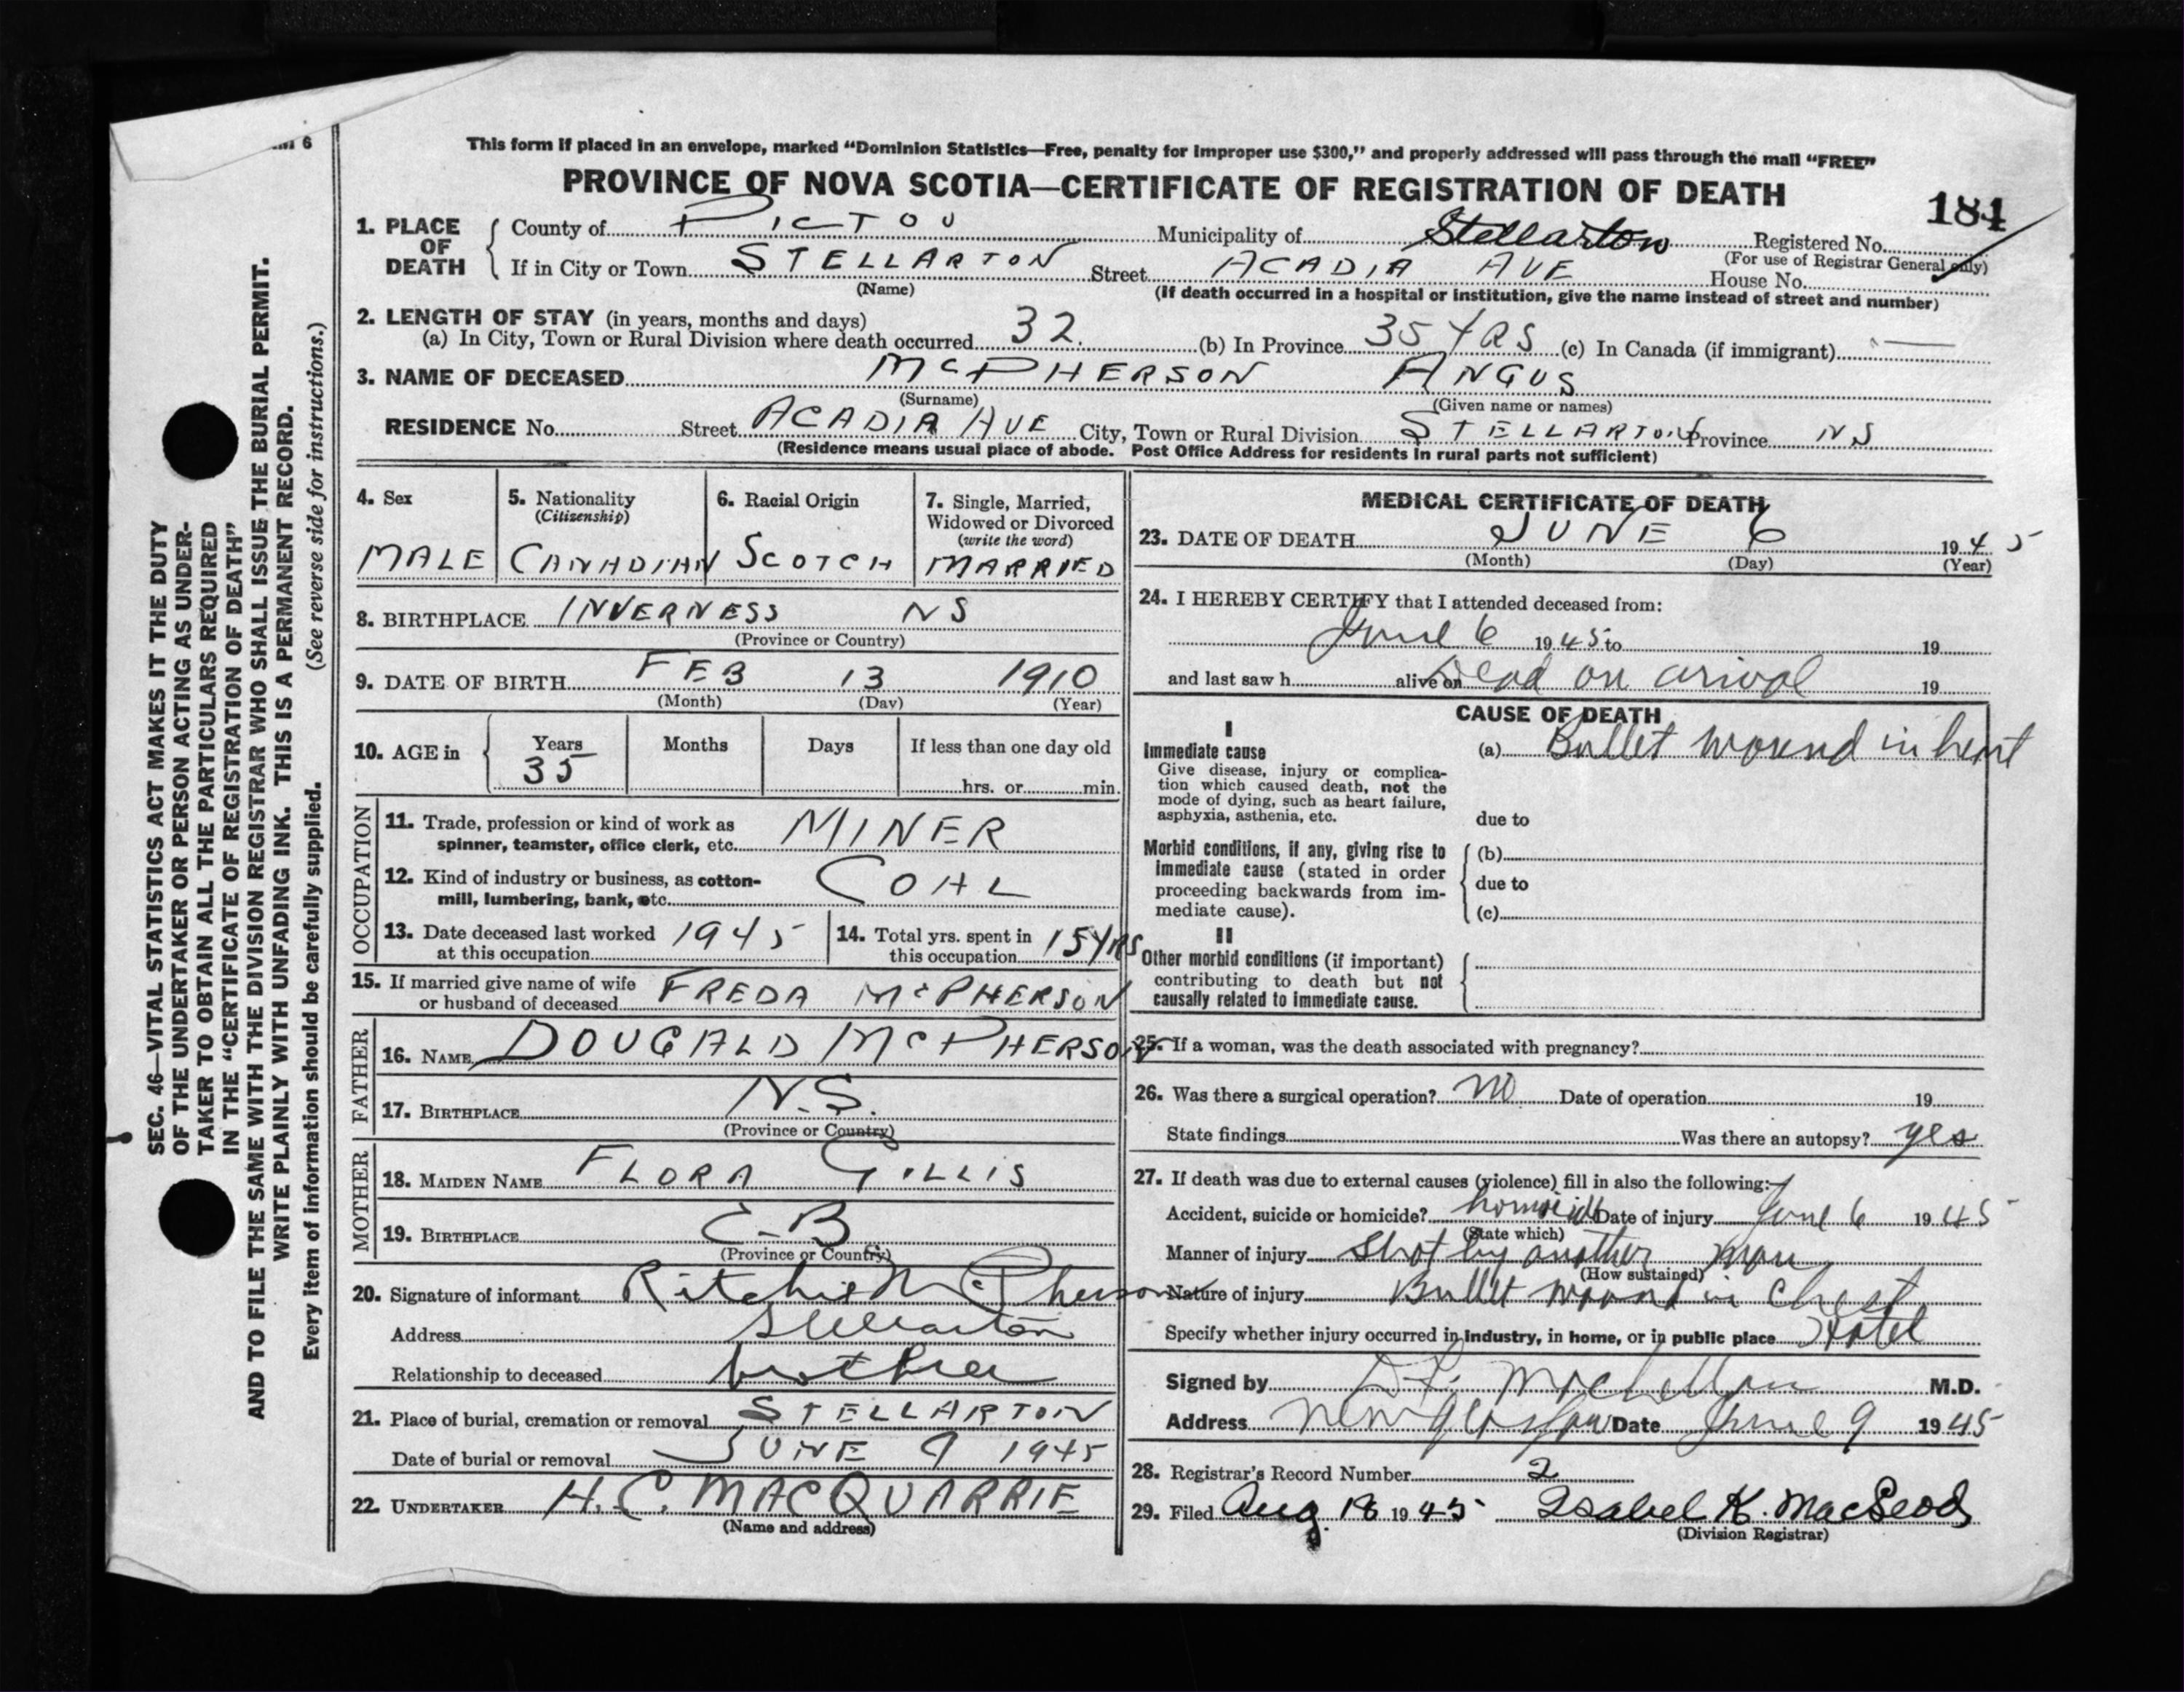 This form if placed in an envelope, marked “Dominion Statistics—Free, penalty for improper use $300,” and properly addressed will pass through the mail “FREE”
PROVINCE OF NOVA SCOTIA—CERTIFICATE OF REGISTRATION OF DEATH
184
6
1. PLACE OF DEATH
County of PICTOU Municipality of Stellarton Registered No.
(For use of Registrar General only)
If in City or Town STELLARTON Street ACADIA AVE House No.
(Name) (If death occurred in a hospital or institution, give the name instead of street and number)
2. LENGTH OF STAY (in years, months and days)
(a) In City, Town or Rural Division where death occurred 32. (b) In Province 35 YRS (c) In Canada (if immigrant) —
3. NAME OF DECEASED McPHERSON ANGUS
(Surname) (Given name or names)
RESIDENCE No. Street ACADIA AVE City, Town or Rural Division STELLARTON Province NS
(Residence means usual place of abode. Post Office Address for residents in rural parts not sufficient)
4. Sex
MALE
5. Nationality
(Citizenship)
CANADIAN
6. Racial Origin
SCOTCH
7. Single, Married,
Widowed or Divorced
(write the word)
MARRIED
8. BIRTHPLACE INVERNESS NS
(Province or Country)
9. DATE OF BIRTH FEB 13 1910
(Month) (Day) (Year)
10. AGE in Years Months Days If less than one day old
35 hrs. or min.
OCCUPATION
11. Trade, profession or kind of work as
spinner, teamster, office clerk, etc. MINER
12. Kind of industry or business, as cotton-
mill, lumbering, bank, etc. COAL
13. Date deceased last worked
at this occupation 1945
14. Total yrs. spent in
this occupation 15 YRS
15. If married give name of wife
or husband of deceased FREDA McPHERSON
FATHER
16. NAME DOUGALD McPHERSON
17. BIRTHPLACE N.S.
(Province or Country)
MOTHER
18. MAIDEN NAME FLORA GILLIS
19. BIRTHPLACE C-B
(Province or Country)
20. Signature of informant Ritchie McPherson
Address Stellarton
Relationship to deceased brother
21. Place of burial, cremation or removal STELLARTON
Date of burial or removal JUNE 9 1945
22. UNDERTAKER H. C. MACQUARRIE
(Name and address)
MEDICAL CERTIFICATE OF DEATH
23. DATE OF DEATH JUNE 6 1945
(Month) (Day) (Year)
24. I HEREBY CERTIFY that I attended deceased from:
June 6 1945 to 19
and last saw h alive on Dead on arival 19
CAUSE OF DEATH
I
Immediate cause
Give disease, injury or complica-
tion which caused death, not the
mode of dying, such as heart failure,
asphyxia, asthenia, etc.
(a) Bullet wound in heart
due to
Morbid conditions, if any, giving rise to
immediate cause (stated in order
proceeding backwards from im-
mediate cause).
(b)
due to
(c)
II
Other morbid conditions (if important)
contributing to death but not
causally related to immediate cause.
25. If a woman, was the death associated with pregnancy?
26. Was there a surgical operation? no Date of operation 19
State findings Was there an autopsy? yes
27. If death was due to external causes (violence) fill in also the following:—
Accident, suicide or homicide? homicide Date of injury June 6 1945
(State which)
Manner of injury Shot by another man
(How sustained)
Nature of injury Bullet wound in Chest
Specify whether injury occurred in industry, in home, or in public place Hotel
Signed by MacLellan M.D.
Address New Glasgow Date June 9 1945
28. Registrar's Record Number 2
29. Filed Aug. 18 1945 Isabel K. MacLeod
(Division Registrar)
SEC. 46—VITAL STATISTICS ACT MAKES IT THE DUTY
OF THE UNDERTAKER OR PERSON ACTING AS UNDER-
TAKER TO OBTAIN ALL THE PARTICULARS REQUIRED
IN THE “CERTIFICATE OF REGISTRATION OF DEATH”
AND TO FILE THE SAME WITH THE DIVISION REGISTRAR WHO SHALL ISSUE THE BURIAL PERMIT.
WRITE PLAINLY WITH UNFADING INK. THIS IS A PERMANENT RECORD.
Every item of information should be carefully supplied. (See reverse side for instructions.)